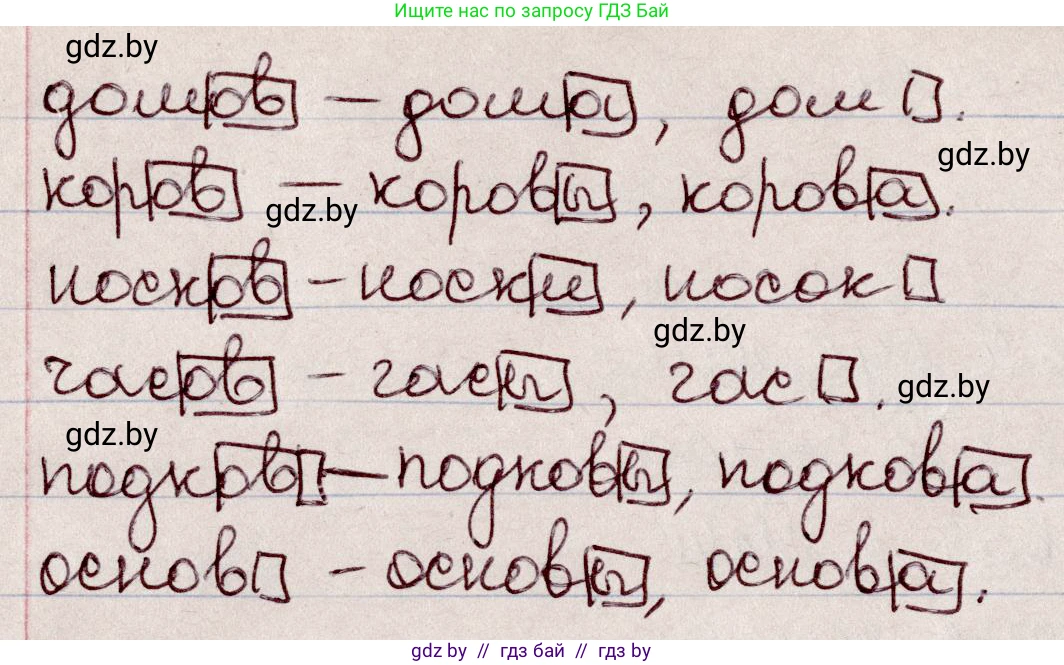 Ищите нас по запросу ГДЗ Бай
gdz.by
домов – дома, дом .
gdz.by
коров – коровы, корова.
gdz.by
носков – носки, носок
gdz.by
часов – часы, час .
gdz.by
gdz.by
подков – подковы, подкова.
основ – основы, основа.
gdz.by // гдз бай // гдз by